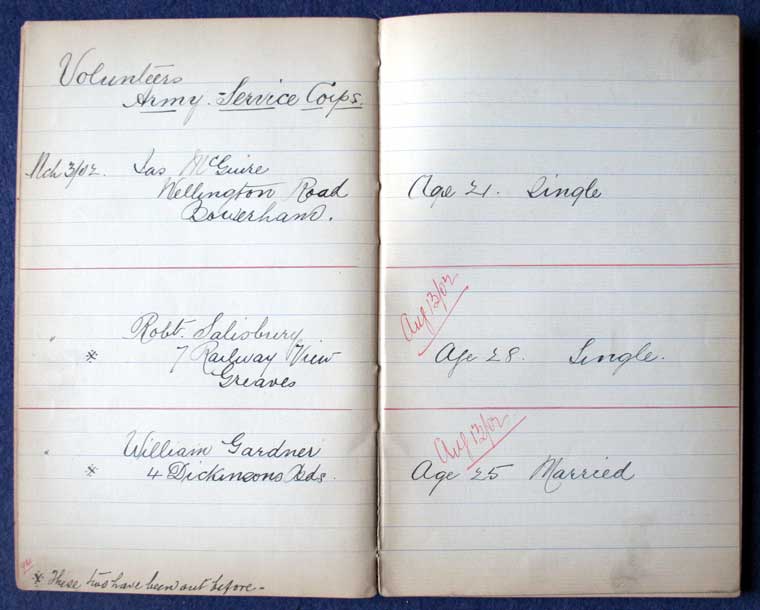 Volunteers
Army Service Corps.
Mch 3/02. Jas McGuire
Wellington Road
Bowerham.
Age 21. Single
Aug 13/02
" Robt. Salisbury
* 7 Railway View
Greaves
Age 28. Single.
Aug 13/02
" William Gardner
* 4 Dickinsons Yds.
Age 25 Married
* These two have been out before -